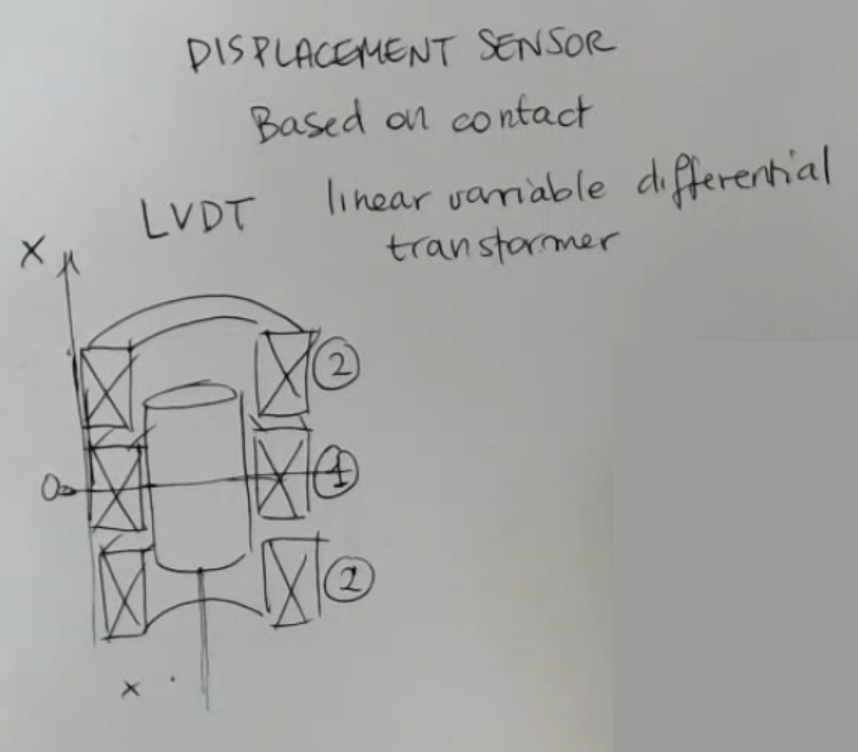 DISPLACEMENT SENSOR
Based on contact
LVDT linear variable differential
transformer
X
2
0
1
2
x